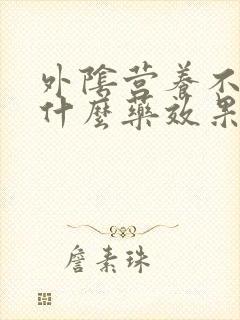 外陰营養不
什麼藥效果
詹素珠